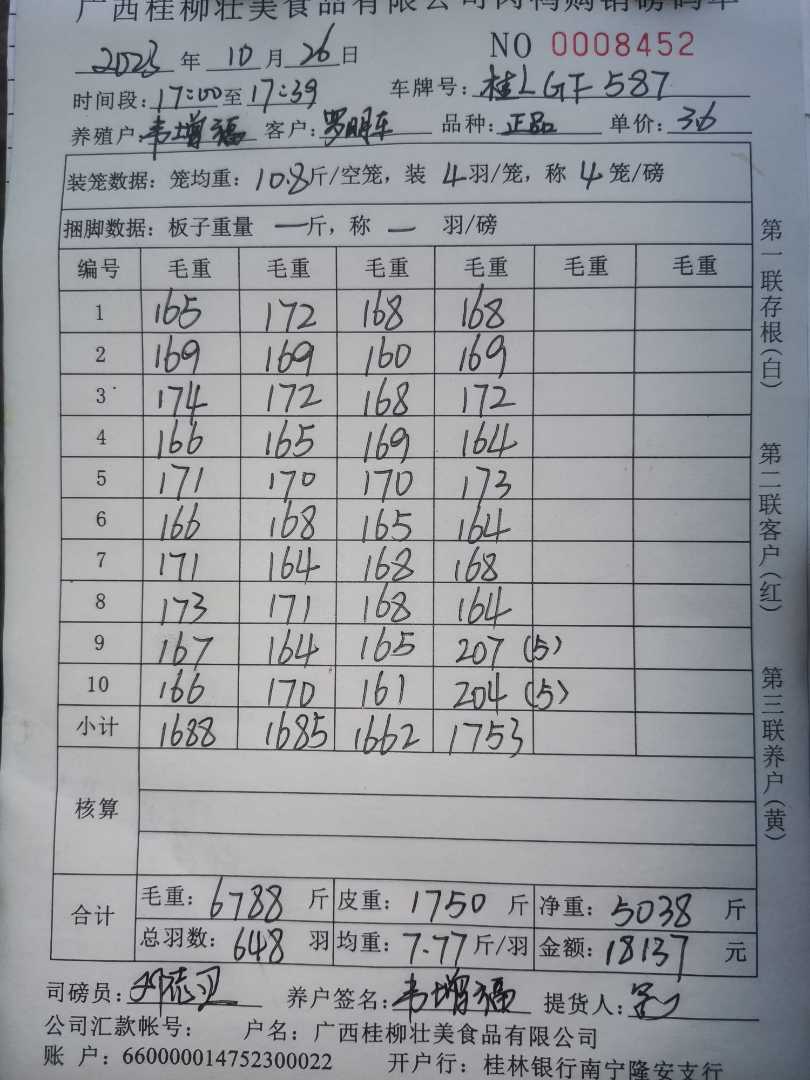 广西桂柳壮美食品有限公司肉鸭购销磅码单
2023 年 10 月 26 日 NO 0008452
时间段: 17:00 至 17:39 车牌号: 桂L GF 587
养殖户: 韦增福 客户: 罗明车 品种: 正品 单价: 3.6
装笼数据: 笼均重: 10.8 斤/空笼, 装 4 羽/笼, 称 4 笼/磅
捆脚数据: 板子重量 一 斤, 称 一 羽/磅
编号 毛重 毛重 毛重 毛重 毛重 毛重
1 165 172 168 168
2 169 169 160 169
3 174 172 168 172
4 166 165 169 164
5 171 170 170 173
6 166 168 165 164
7 171 164 168 168
8 173 171 168 164
9 167 164 165 207 (5)
10 166 170 161 204 (5)
小计 1688 1685 1662 1753
核算
合计 毛重: 6788 斤 皮重: 1750 斤 净重: 5038 斤
总羽数: 648 羽 均重: 7.77 斤/羽 金额: 18137 元
司磅员: 养户签名: 韦增福 提货人:
公司汇款帐号: 户名: 广西桂柳壮美食品有限公司
账 户: 660000014752300022 开户行: 桂林银行南宁隆安支行
第一联存根(白)
第二联客户(红)
第三联养户(黄)